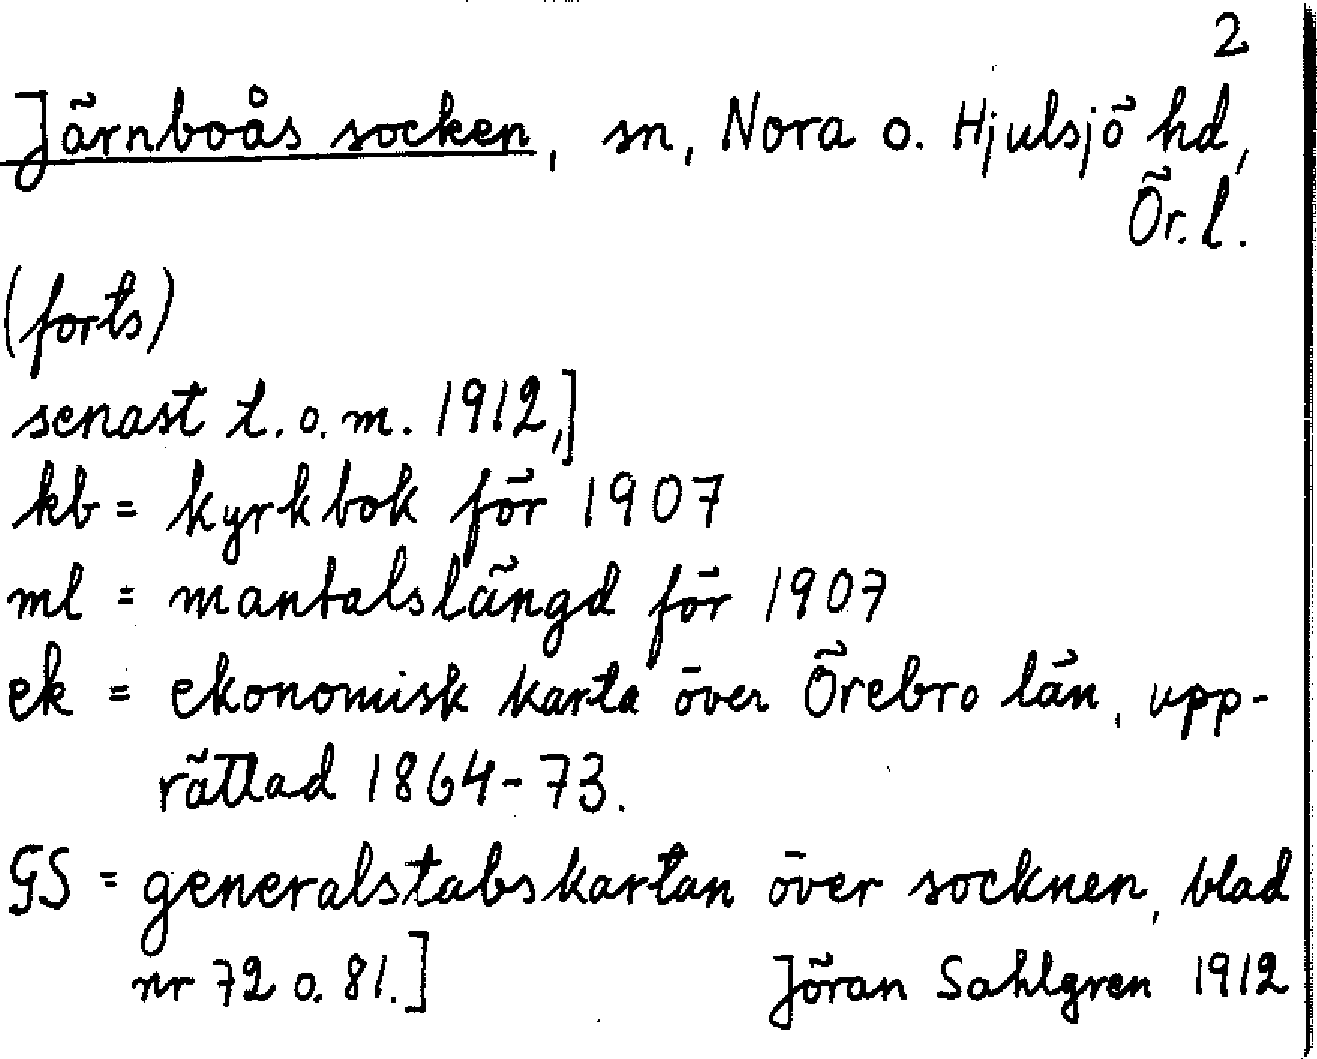 2
Järnboås socken, sn, Nora o. Hjulsjö hd,
Ör. l.
(forts)
senast t. o. m. 1912,]
kb = kyrkbok för 1907
ml = mantalslängd för 1907
ek = ekonomisk karta över Örebro län, upp-
rättad 1864-73.
GS = generalstabskartan över socknen, blad
nr 72 o. 81.]
Jöran Sahlgren 1912